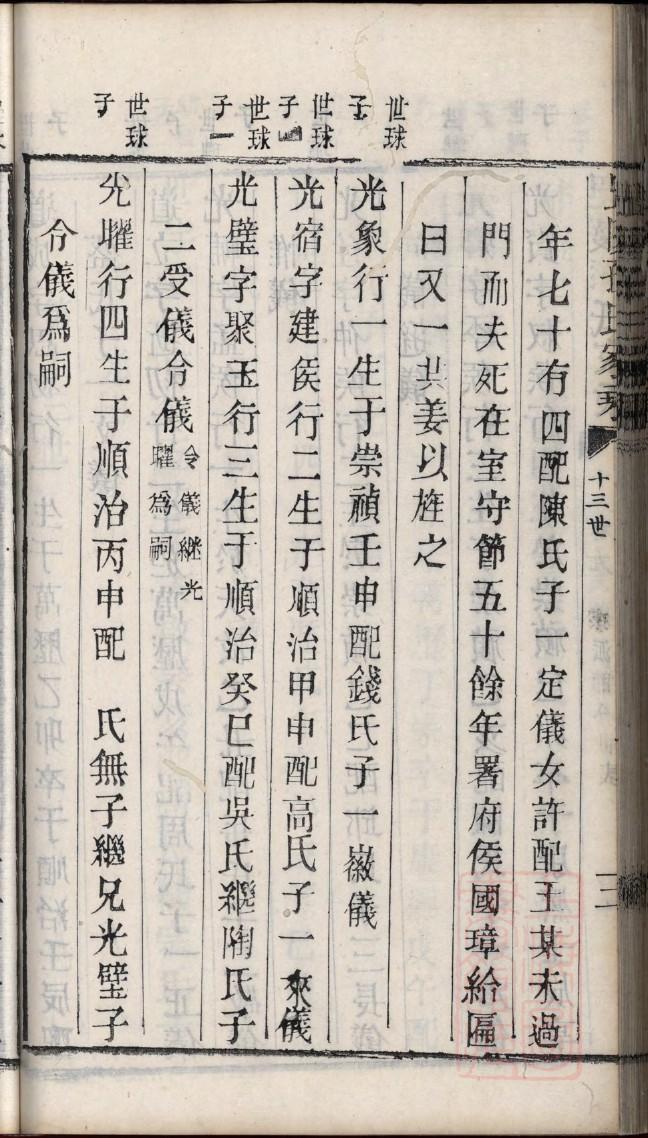 氏家乘
十三世
三
年七十有四配陳氏子一定儀女許配王某未過
門而夫死在室守節五十餘年署府侯國璋給匾
曰又一共姜以旌之
世球子
光象行一生于崇禎壬申配錢氏子一徽儀
世球子
光宿字建侯行二生于順治甲申配高氏子一來儀
世球子
光璧字聚玉行三生于順治癸巳配吳氏繼陶氏子
二受儀令儀令儀繼光
曜爲嗣
世球子
光曜行四生于順治丙申配　氏無子繼兄光璧子
令儀爲嗣